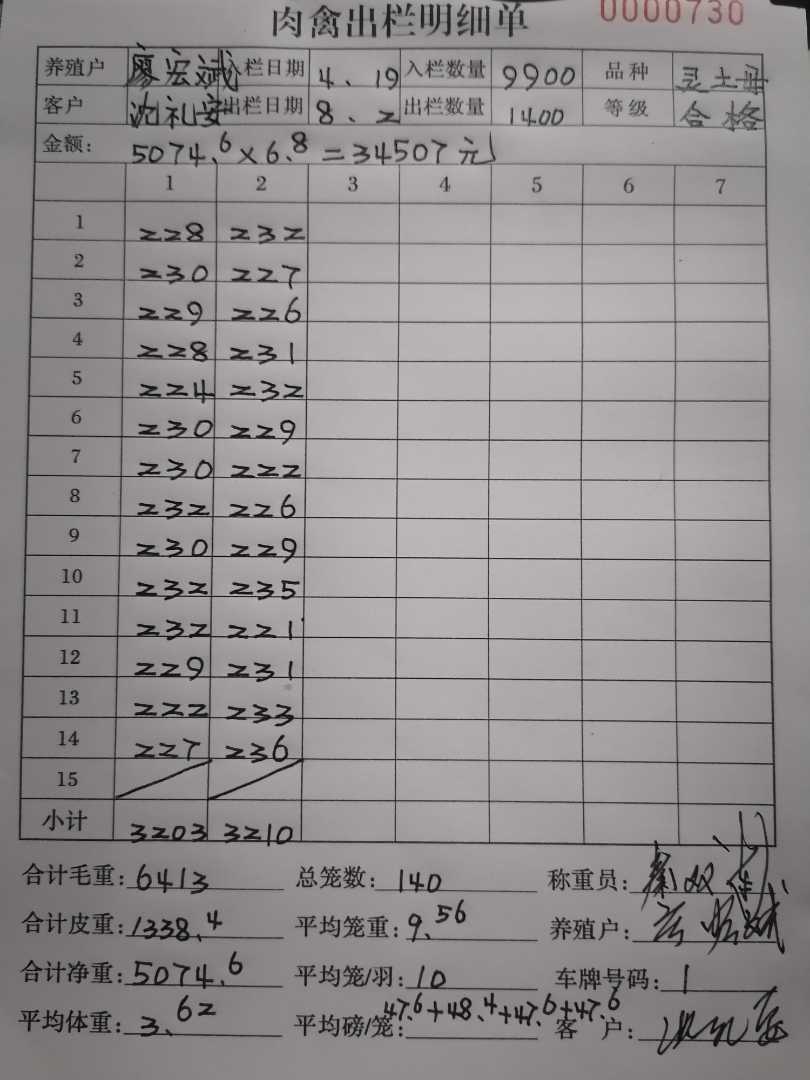 肉禽出栏明细单 0000730
养殖户 廖宏斌 入栏日期 4、19 入栏数量 9900 品种
客户 沈礼安 出栏日期 8、2 出栏数量 1400 等级 合格
金额: 5074.6×6.8=34507元
1 2 3 4 5 6 7
1 228 232
2 230 227
3 229 226
4 228 231
5 224 232
6 230 229
7 230 222
8 232 226
9 230 229
10 232 235
11 232 221
12 229 231
13 222 233
14 227 236
15
小计 3203 3210
合计毛重: 6413 总笼数: 140 称重员:
合计皮重: 1338.4 平均笼重: 9.56 养殖户:
合计净重: 5074.6 平均笼/羽: 10 车牌号码: 1
平均体重: 3.62 平均磅/笼: 47.6+48.4+47.6+47.6 客户: